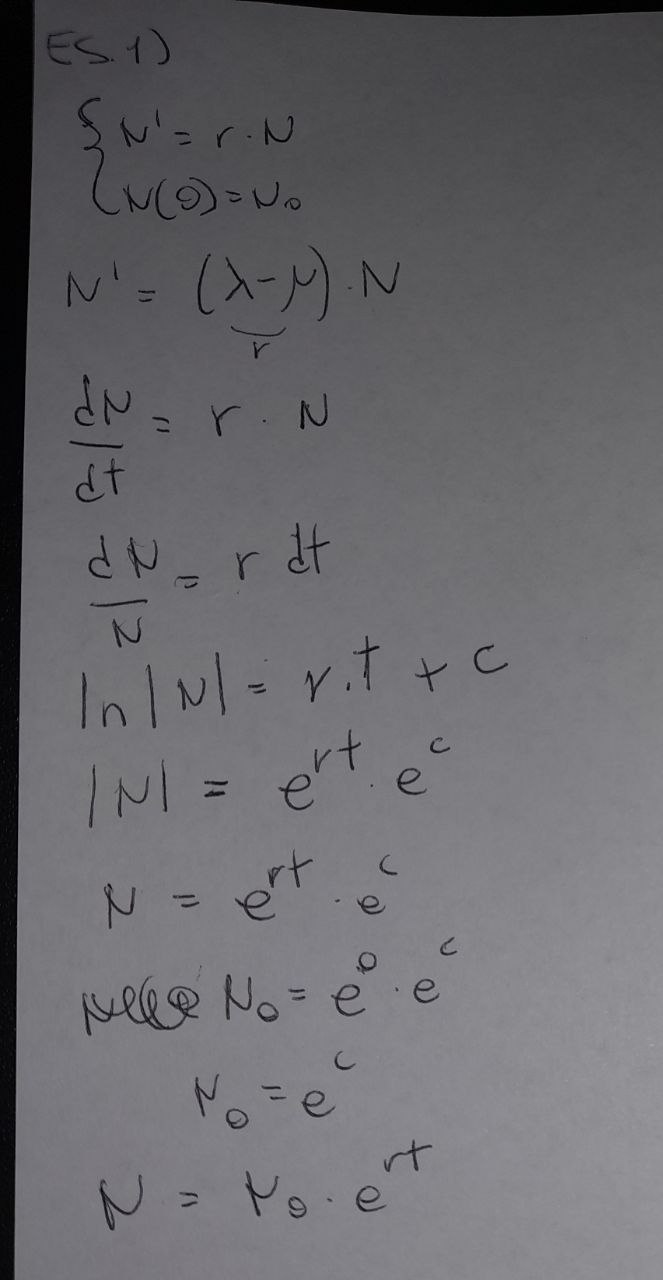 ES.1)
{ N' = r · N
N(0) = N₀
N' = (λ-μ) · N
r
dN/dt = r · N
dN/N = r dt
ln|N| = r.t + c
|N| = e^rt · e^c
N = e^rt · e^c
N₀ = e⁰ · e^c
N₀ = e^c
N = N₀ · e^rt